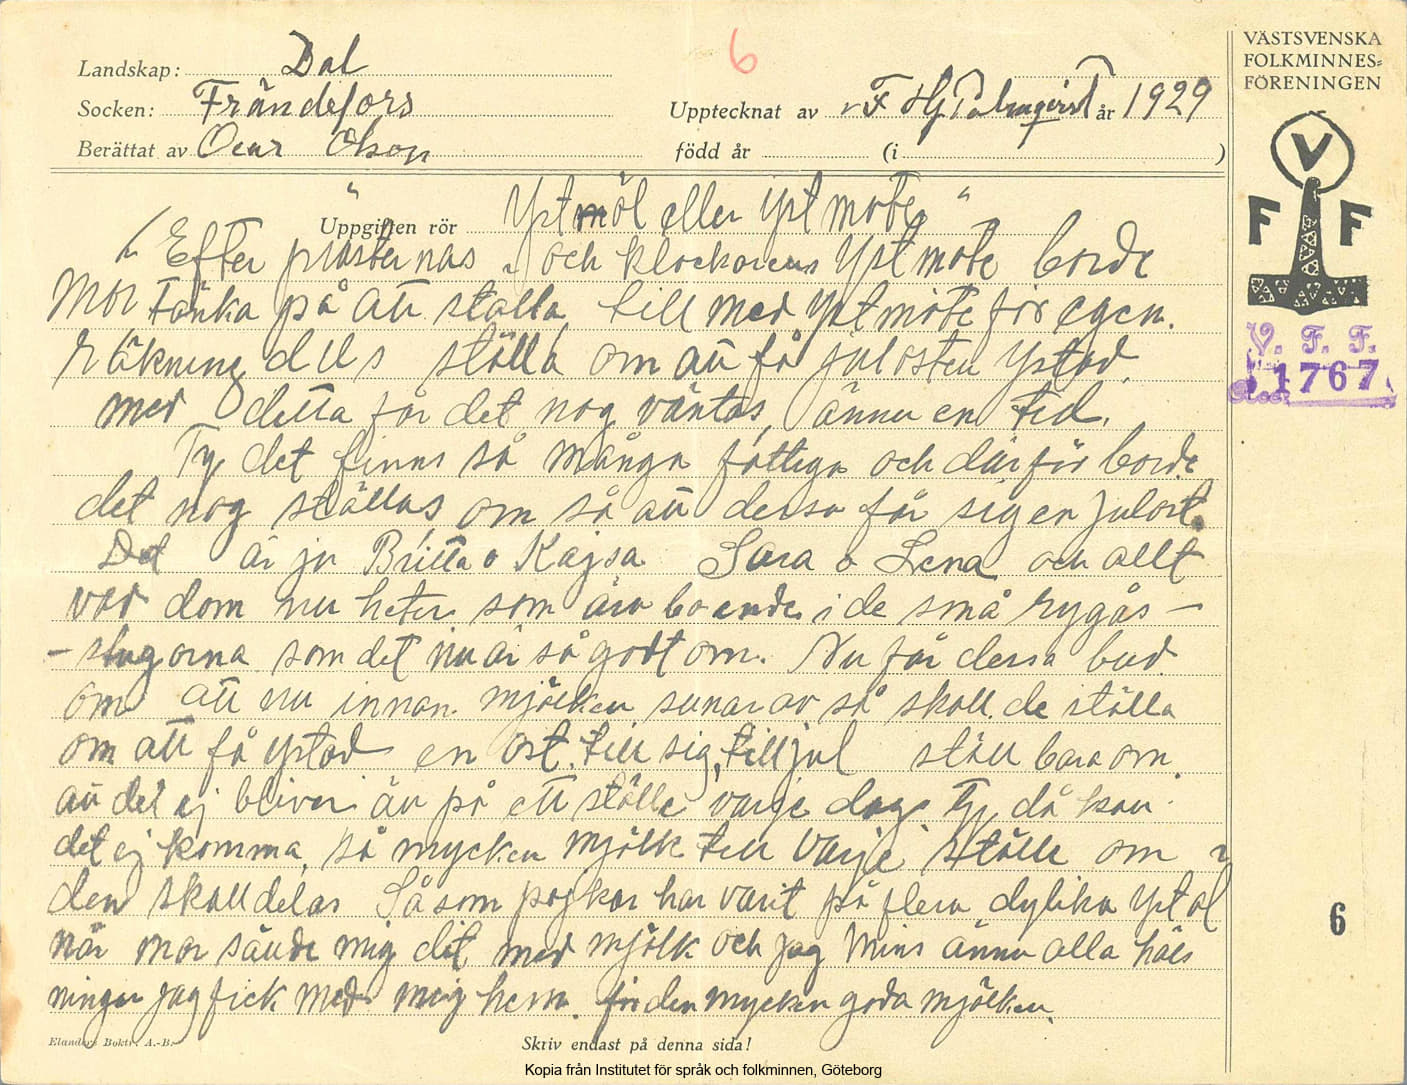 6
VÄSTSVENSKA
FOLKMINNES=
FÖRENINGEN
Landskap: Dal
Socken: Frändefors
Upptecknat av F Hj Palmqvist år 1929
Berättat av Oscar Olson
född år (i )
V
F F
V. F. F.
1767
Uppgiften rör " Ystmöl eller ystmöte "
Efter prästernas och klockarens Ystmöte borde
Mor tänka på att ställa till med Ystmöte för egen
räkning dvs ställa om att få julosten Ystad
med detta får det nog väntas, ännu en tid.
Ty det finns så många fattiga och därför borde
det nog ställas om så att dessa får sig en julost.
Det är ju Britta o Kajsa Sara o Lena och allt
vad dom nu heter som äro boende i de små rygås -
- stugorna som det nu är så godt om. Nu får dessa bud
om att nu innan mjölken sinar av så skall de ställa
om att få ystad en ost till sig, till jul ställ bara om
att det ej bliver än på ett ställe varje dag. Ty då kan
det ej komma så mycken mjölk till varje ställe om
den skall delas Så som pojkar har varit på flera dylika Ystöl
när mor sände mig dit med mjölk och jag mins ännu alla häls
ningar jag fick med mig hem för den mycken goda mjölken.
6
Elanders Boktr. A.-B.
Skriv endast på denna sida!
Kopia från Institutet för språk och folkminnen, Göteborg